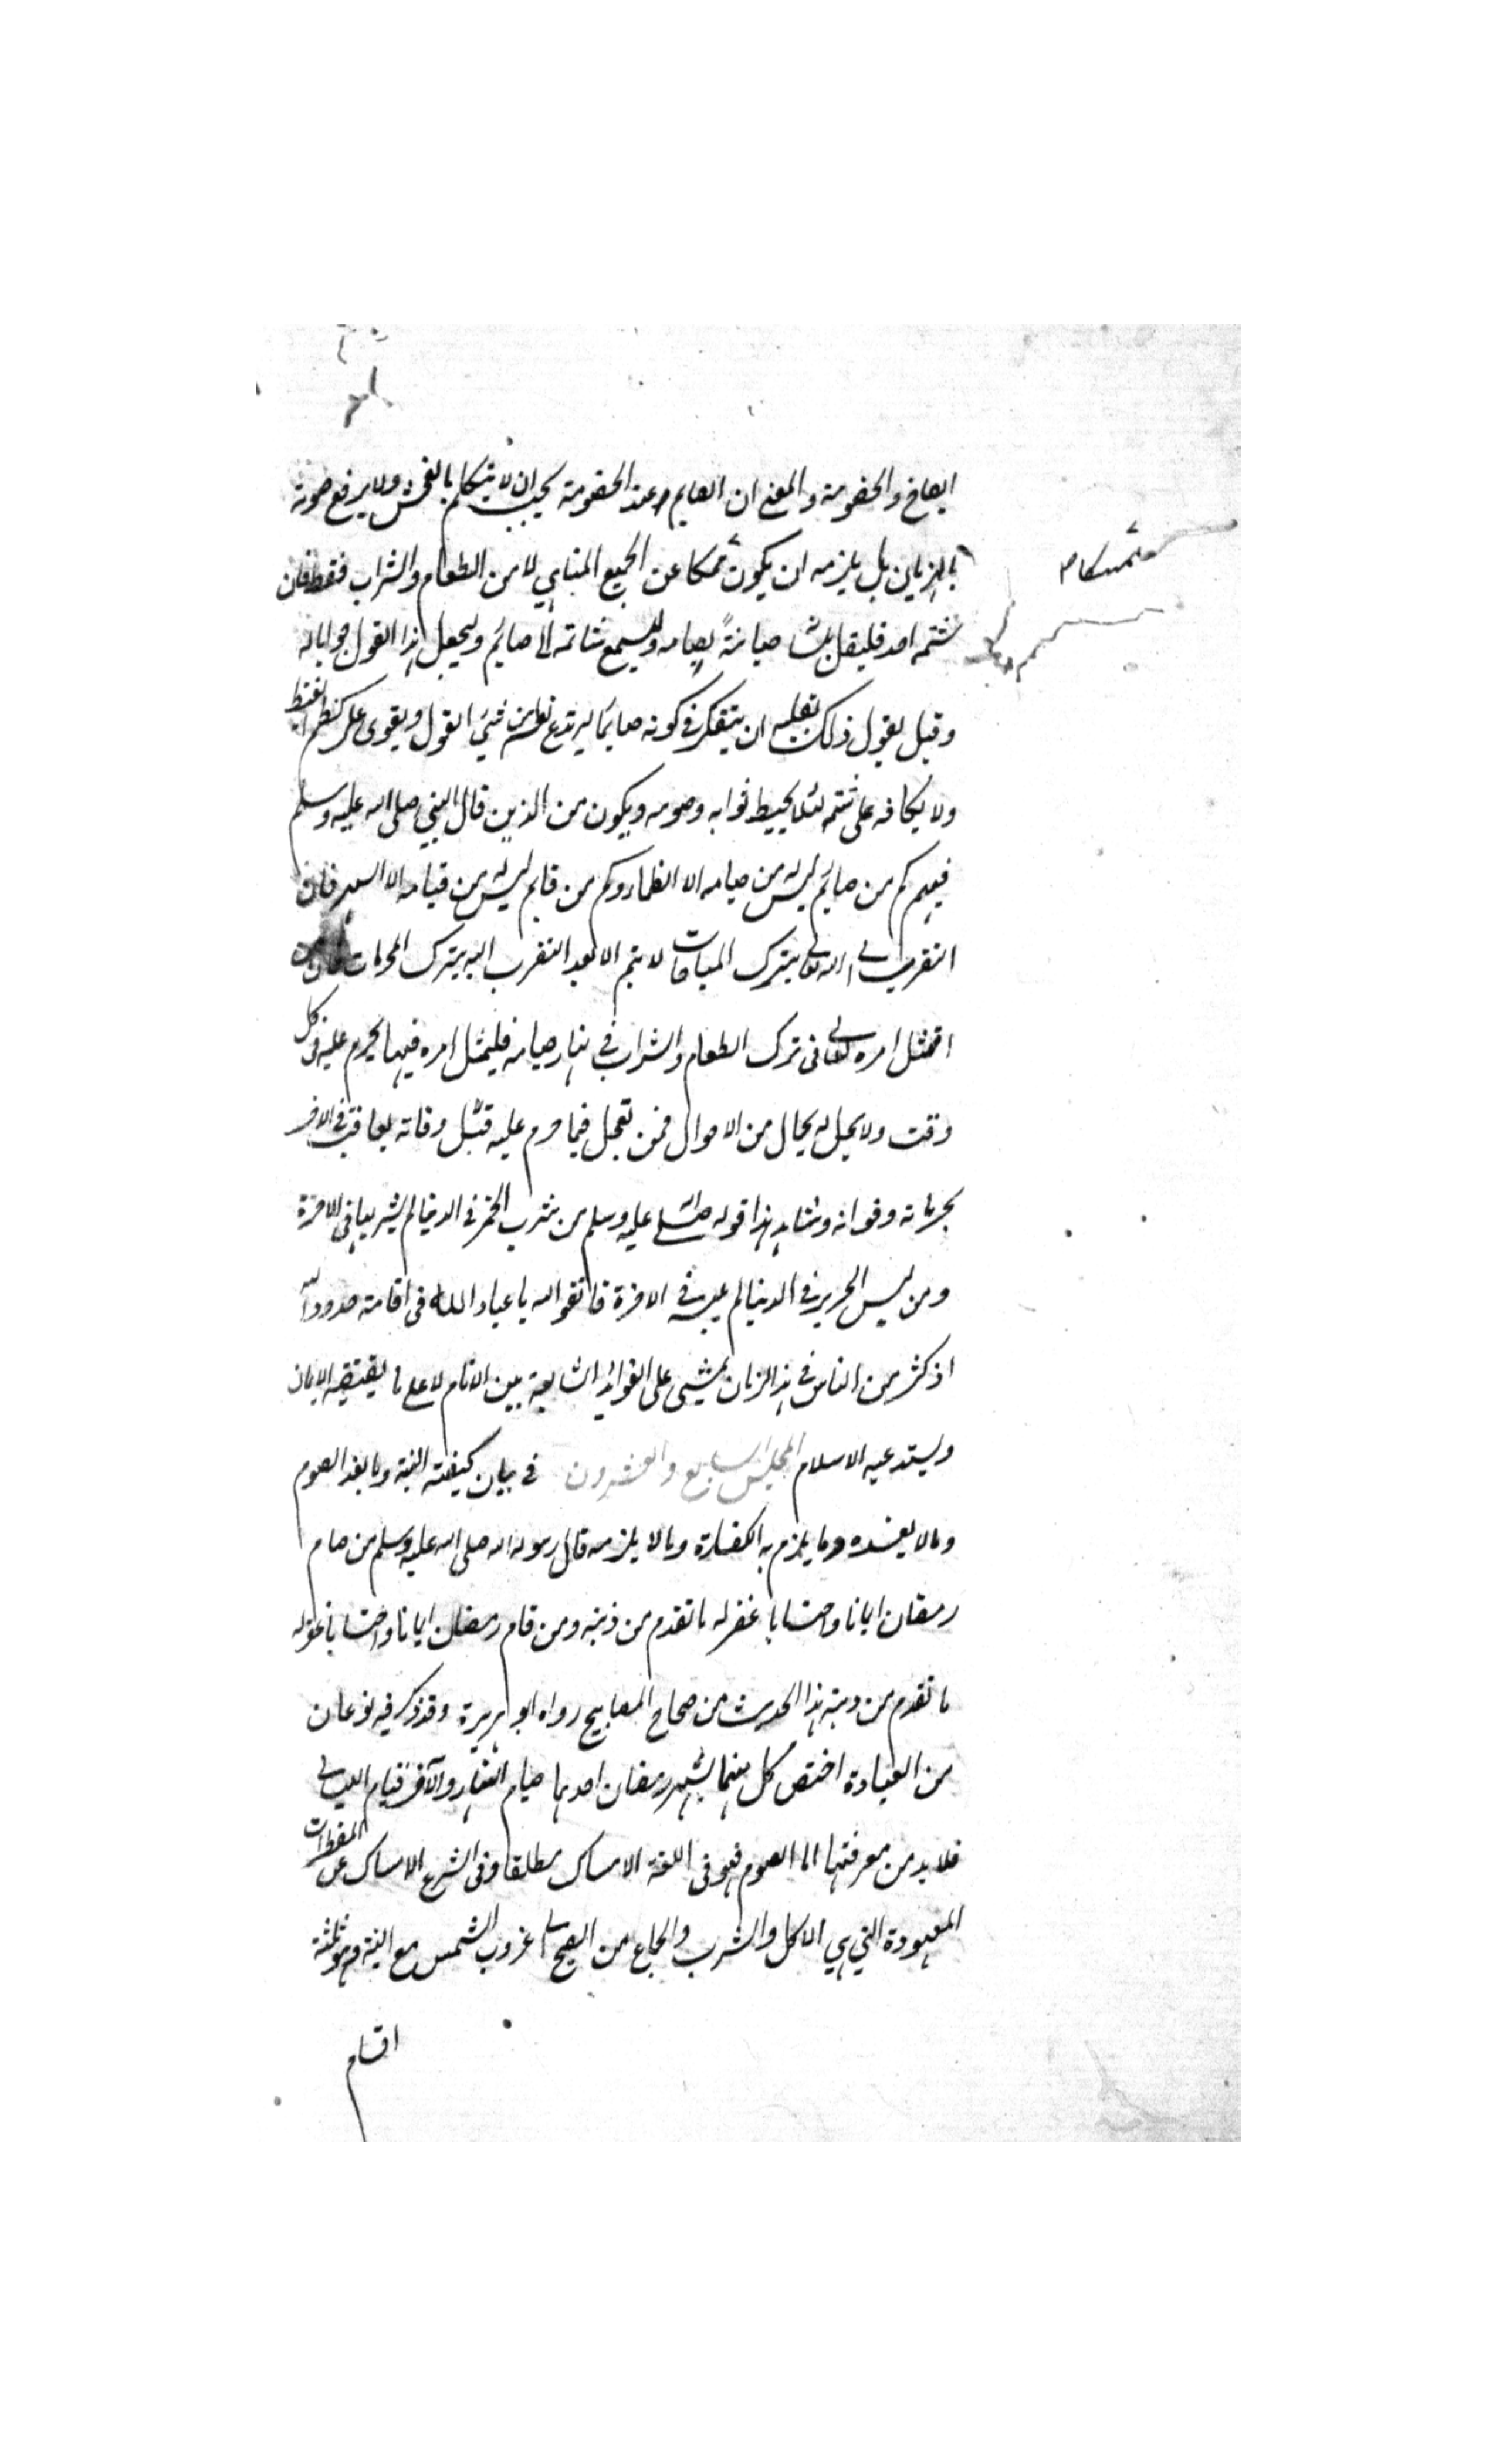 الصاخ والخصومة والمعنى ان الصايم عند الخصومة يجب ان لا يتكلم بالفحش ولا يرفع صوته
بالهزيان بل يلزمه ان يكون ممسكا عن الجميع المناهي لا من الطعام والشراب فقط فان
متمسكا م
شتمه احد فليقل بلسانه صيانةً لصيامه وليسمع شاتمه انى صائم وليجعل هذا القول جوابا له
وقيل يقول ذلك بقلبه ان يتفكر فى كونه صائما ليرتدع نفسه من شئ القول ويقوى على كظم الغيظ
ولا يكافه على شتمه لئلا يحبط ثوابه وصومه ويكون من الذين قال النبي صلى الله عليه وسلم
فيهم كم من صائم ليس له من صيامه الا الظماء وكم من قايم ليس له من قيامه الا السهر فان
التقرب الى الله تعالى بترك المباحات لا يتم الا بعد التقرب اليه بترك المحرمات فان من
امتثل امره تعالى فى ترك الطعام والشراب فى نهار صيامه فليمثل امره فيما يحرم عليه فى كل
وقت ولا يحل له بحال من الاحوال فمن تعجل فيما حرم عليه قبل وفاته يعاقب فى الاخر
بحرمانه وفواته وشاهد هذا قوله صلى الله عليه وسلم من شرب الخمر فى الدنيا لم يشربها فى الاخرة
ومن لبس الحرير فى الدنيا لم يلبسه فى الاخرة فاتقوا الله يا عباد الله فى اقامة حدود الله
اذ كثير من الناس فى هذا الزمان يمشى على العوائد الشايعة بين الانام لا على ما يقتضيه الايمان
ويستدعيه الاسلام المجلس السابع والعشرون فى بيان كيفية النية وما يفسد الصوم
وما لا يفسده وما يلزم به الكفارة وما لا يلزمه قال رسول الله صلى الله عليه وسلم من صام
رمضان ايمانا واحتسابا غفر له ما تقدم من ذنبه ومن قام رمضان ايمانا واحتسابا غفر له
ما تقدم من ذنبه هذا الحديث من صحاح المصابيح رواه ابو هريرة وقد ذكر فيه نوعان
من العبادة اختص كل منهما بشهر رمضان احدهما صيام النهار والآخر قيام الليالى
فلا بد من معرفتها اما الصوم فهو فى اللغة الامساك مطلقا وفى الشرع الامساك عن المفطرات
المعهودة التي هي الاكل والشرب والجماع من الصبح الى غروب الشمس مع النية وهو ثلثة
اقسام